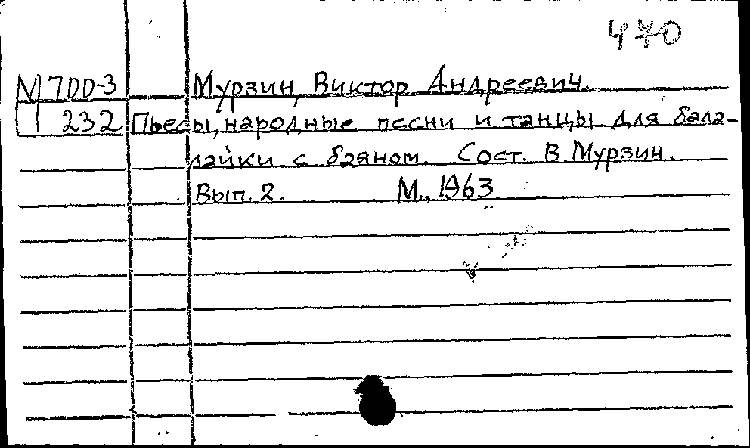 470
М 700-3 Мурзин, Виктор Андреевич.
1 232 Пьесы, народные песни и танцы для бала-
лайки с баяном. Сост. В. Мурзин.
Вып. 2. М., 1963